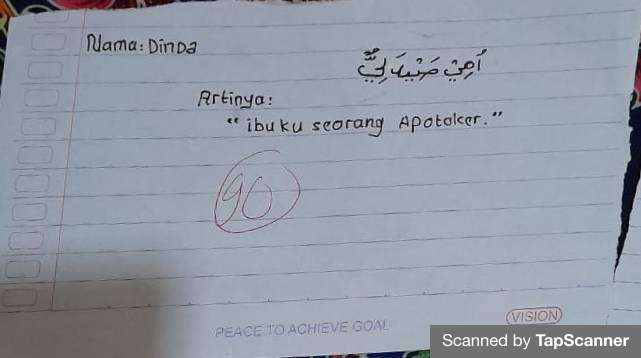 Nama: Dinda
اُمِّيْ صَيْدَ لِيٌّ
Artinya:
"ibuku seorang Apoteker."
90
PEACE TO ACHIEVE GOAL
VISION
Scanned by TapScanner